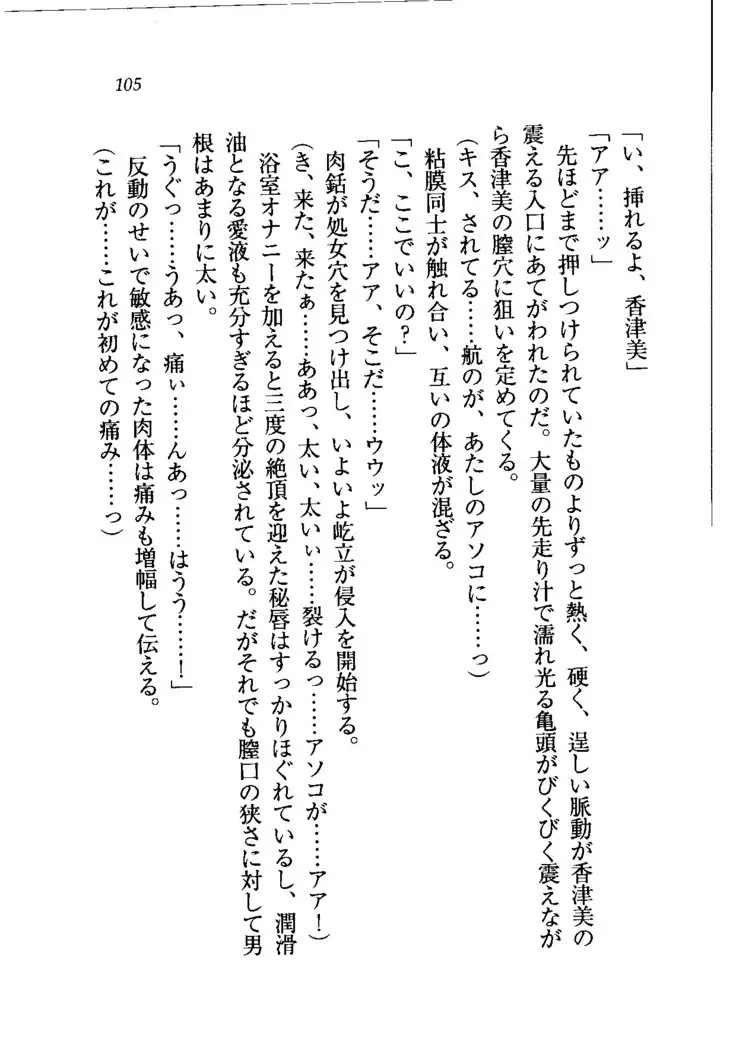 105
「い、挿れるよ、香津美」
「アア……ッ」
先ほどまで押しつけられていたものよりずっと熱く、硬く、逞しい脈動が香津美の
震える入口にあてがわれたのだ。大量の先走り汁で濡れ光る亀頭がびくびく震えなが
ら香津美の膣穴に狙いを定めてくる。
(キス、されてる……航のが、あたしのアソコに……っ)
粘膜同士が触れ合い、互いの体液が混ざる。
「こ、ここでいいの?」
「そうだ……アア、そこだ……ウウッ」
肉銛が処女穴を見つけ出し、いよいよ屹立が侵入を開始する。
(き、来た、来たぁ……ああっ、太い、太いぃ……裂けるっ……アソコが……アア!)
浴室オナニーを加えると三度の絶頂を迎えた秘唇はすっかりほぐれているし、潤滑
油となる愛液も充分すぎるほど分泌されている。だがそれでも膣口の狭さに対して男
根はあまりに太い。
「うぐっ……うあっ、痛ぃ……んあっ……はうう……!」
反動のせいで敏感になった肉体は痛みも増幅して伝える。
(これが……これが初めての痛み……っ)